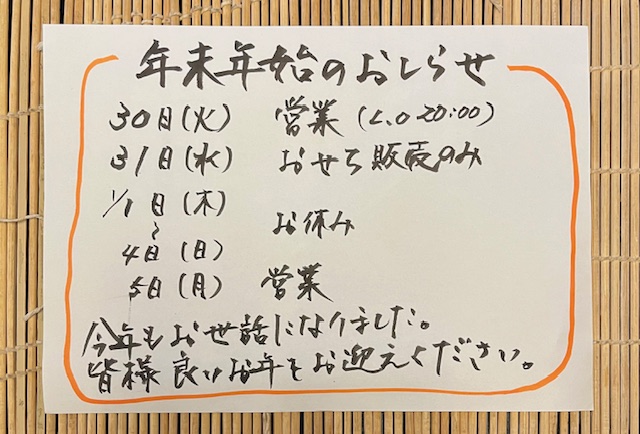 年末年始のおしらせ
30日(火) 営業(L.O 20:00)
31日(水) おせち販売のみ
1/1日(木)
〜 お休み
4日(日)
5日(月) 営業
今年もお世話になりました。
皆様良いお年をお迎えください。